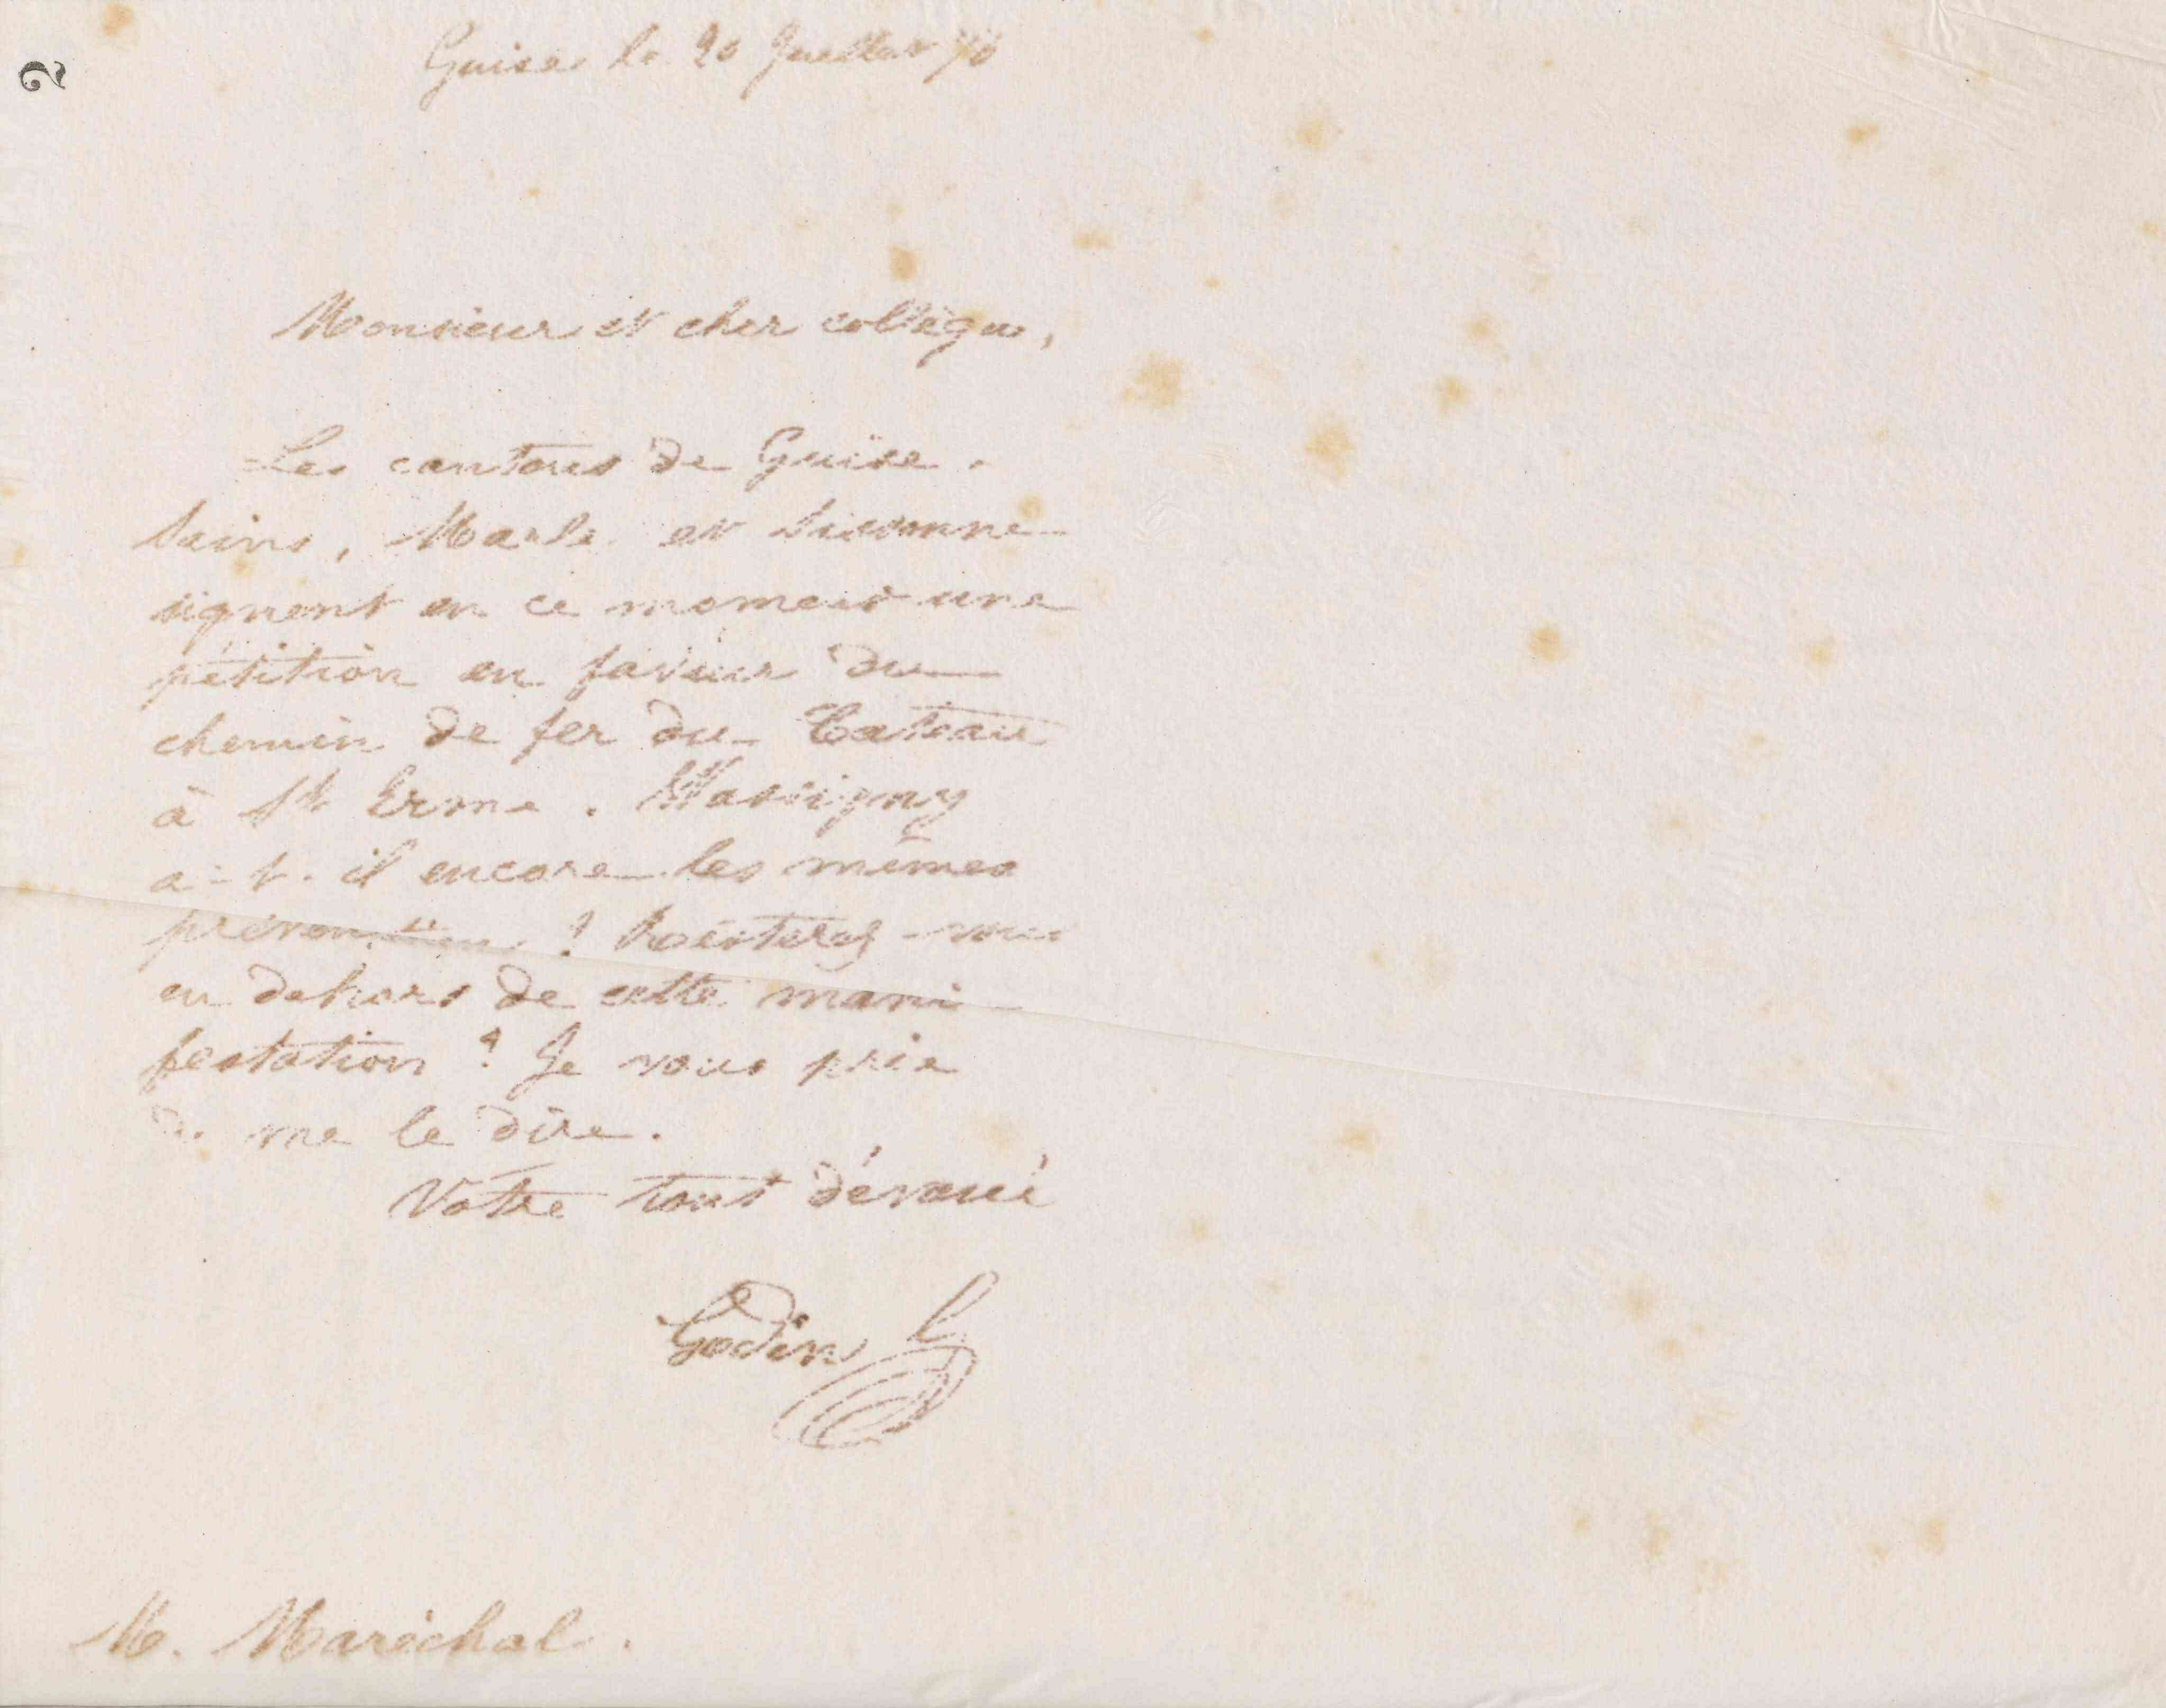 2
Guise le 20 Juillet 70
Monsieur et cher collègue,
Les cantons de Guise,
Sains, Marle et Sissonne
signent en ce moment une
pétition en faveur du
chemin de fer du Cateau
à St Erme. Wassigny
a-t-il encore les mêmes
préventions ? Resterez-vous
en dehors de cette mani
festation ? Je vous prie
de me le dire.
Votre tout dévoué
Godin
M. Maréchal.